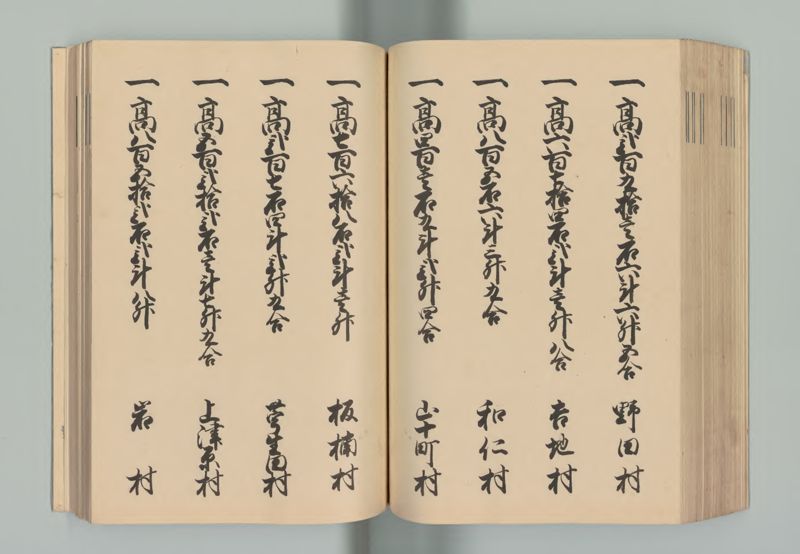 一高弐百九拾壱石六斗六升五合 野田村
一高六百五拾四石弐斗壱升八合 吉地村
一高八百五石六斗三升九合 和仁村
一高四百壱石九斗弐升四合 山十町村
一高七百六拾八石弐斗壱升 板楠村
一高弐百七石四斗弐升九合 生田村
一高五百弐拾弐石壱斗七升九合 上津原村
一高八百五拾弐石弐斗八升 岩村